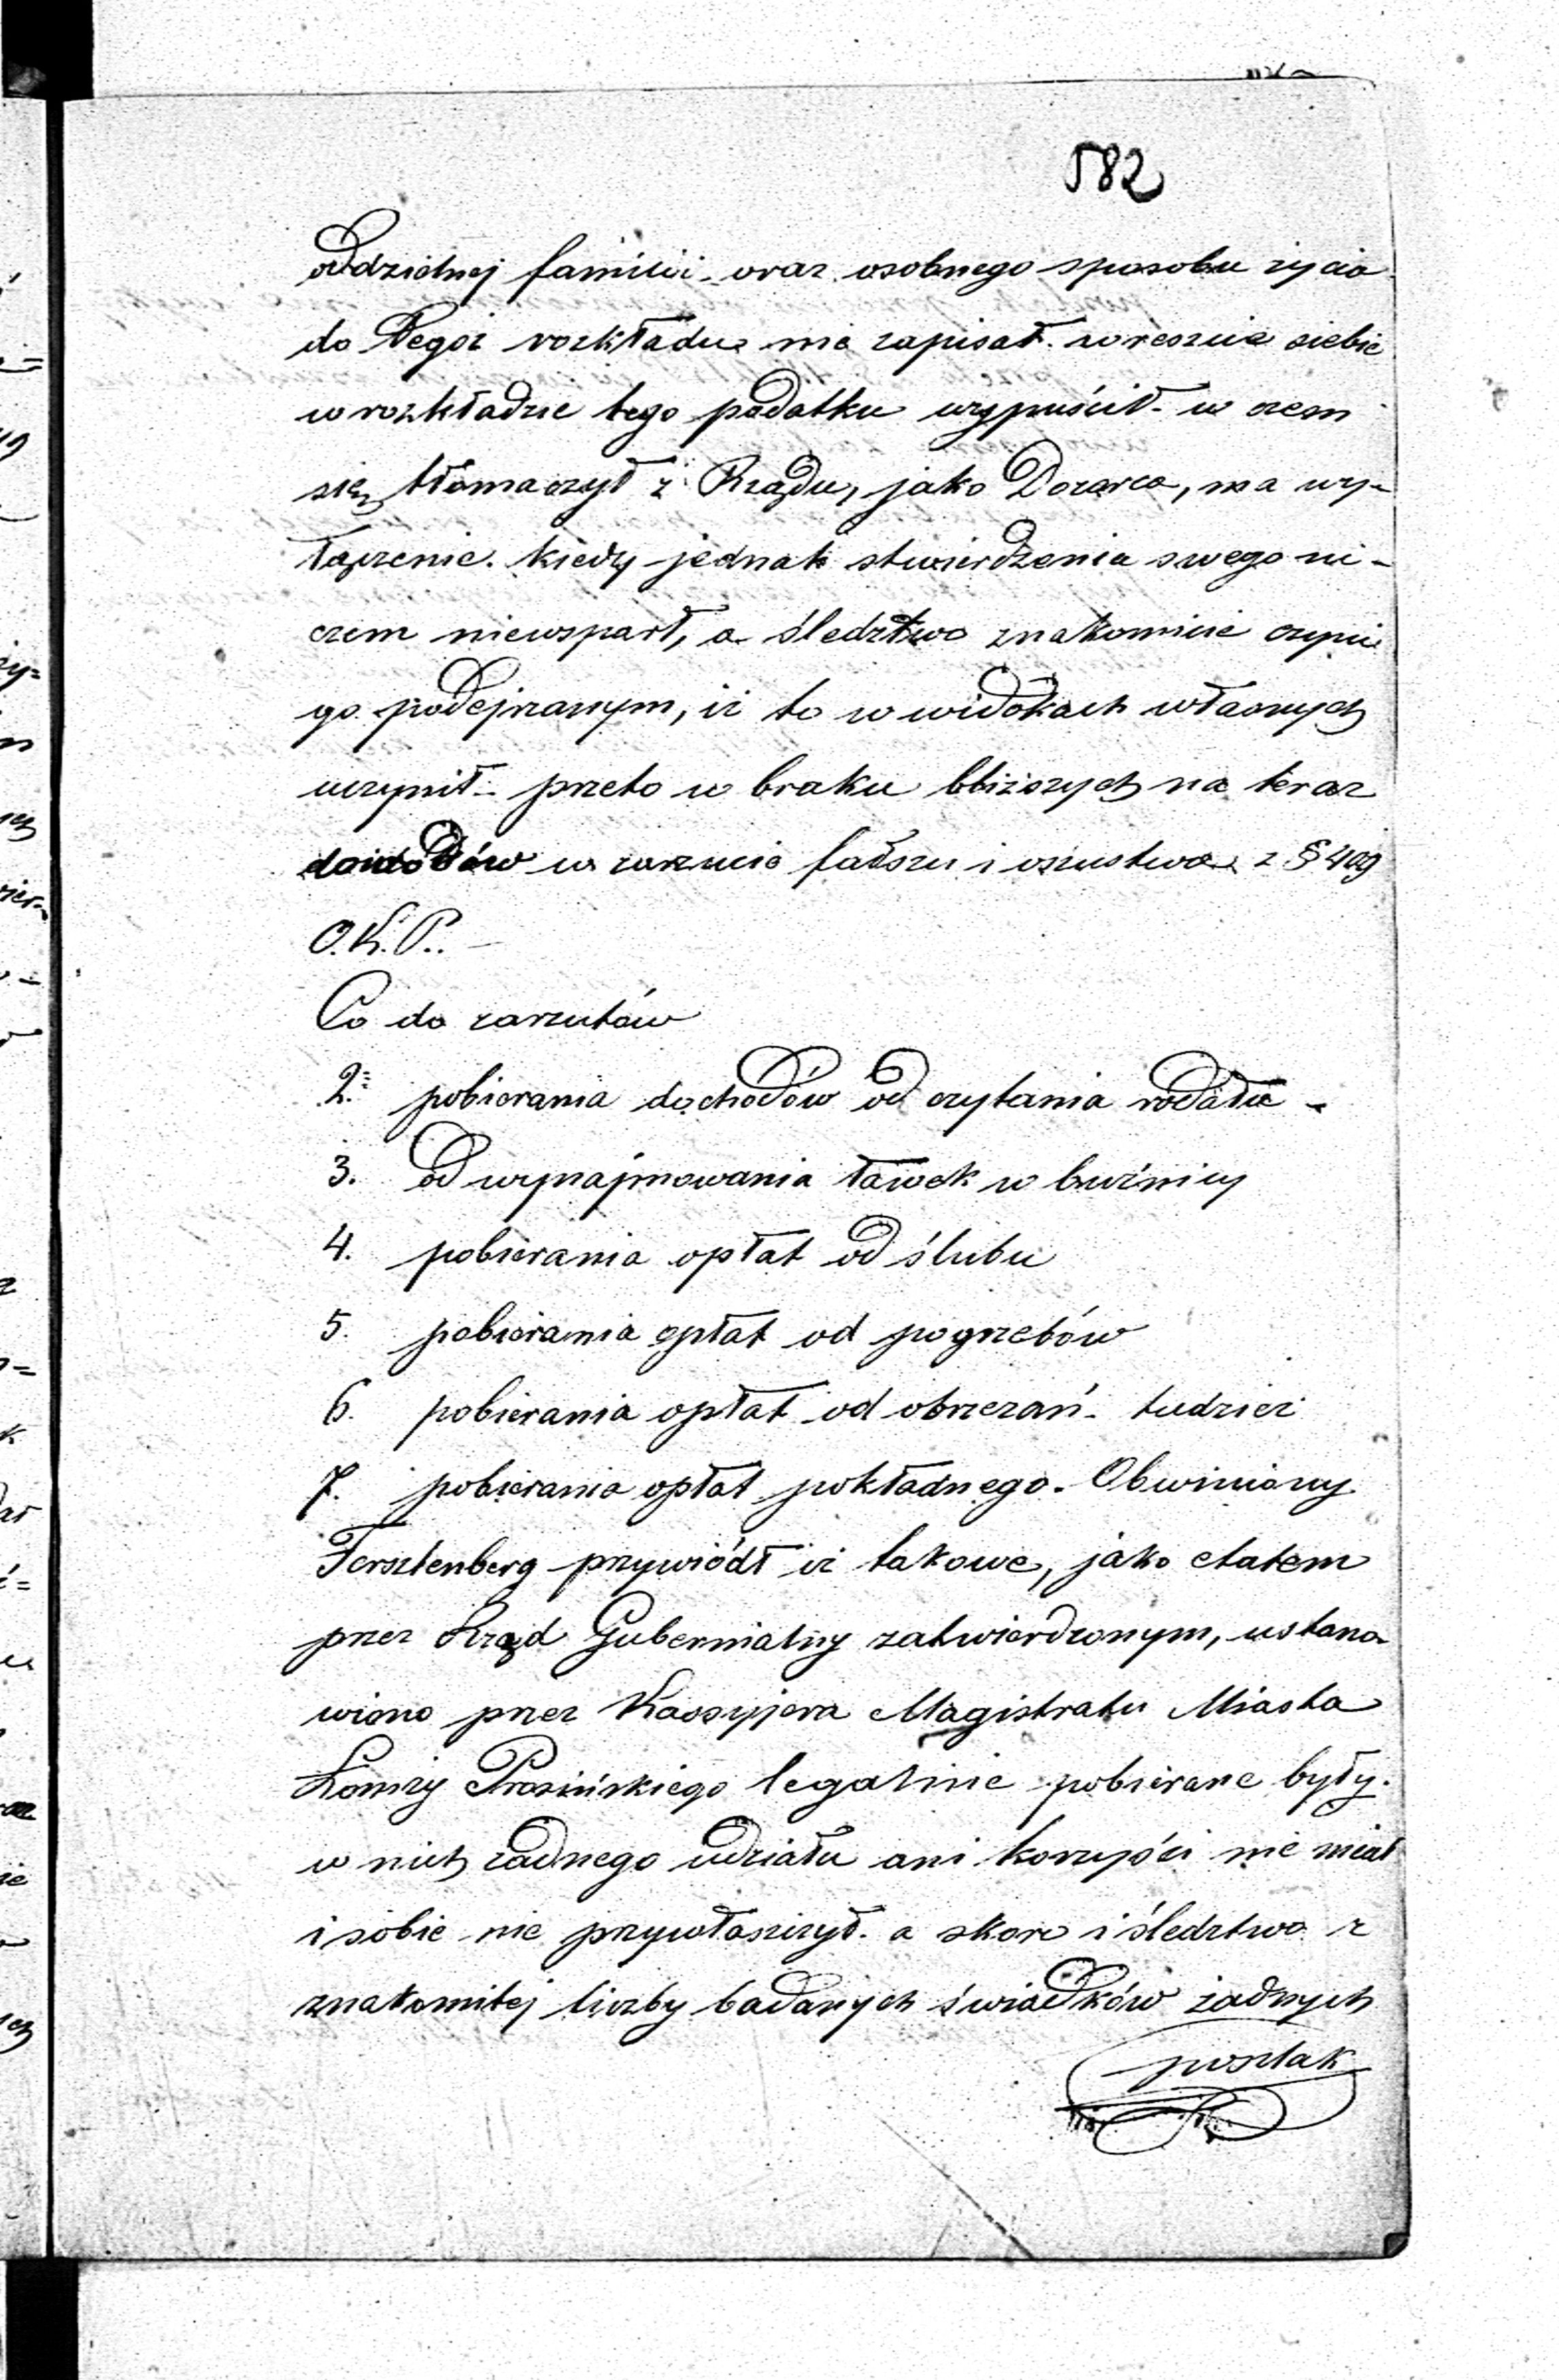 582
oddzielnej familii - oraz osobnego sposobu życia
do tegoż rozkładu nie zapisał. wreszcie siebie
w rozkładzie tego podatku wypuścił - w czem
się tłomaczył z Rządu, jako Dozorca, ma wy-
łączenie. kiedy jednak stwierdzenia swego ni-
czem niewsparł, a śledztwo znakomicie czyni
go podejrzanym, iż to w widokach własnych
uczynił - przeto w braku bliższych na teraz
dowodów w zarzucie fałszu i oszustwa z § 409
O.K.P. -
Co do zarzutów
2. pobierania dochodów od czytania rodału -
3. od wynajmowania ławek w bużnicy
4. pobierania opłat od ślubu
5. pobierania opłat od pogrzebów
6. pobierania opłat od obrzezań - tudzież
7. pobierania opłat pokładnego. Obwiniony
Fersztenberg przywiódł iż takowe, jako etatem
przez Rząd Gubernialny zatwierdzonym, ustano
wione przez Kassyjera Magistratu Miasta
Łomży Prosińskiego legalnie pobierane były.
w nich żadnego udziału ani korzyści nie miał
i sobie nie przywłaszczył. a skoro i śledztwo z
znakomitej liczby badanych świadków żadnych
poszlak